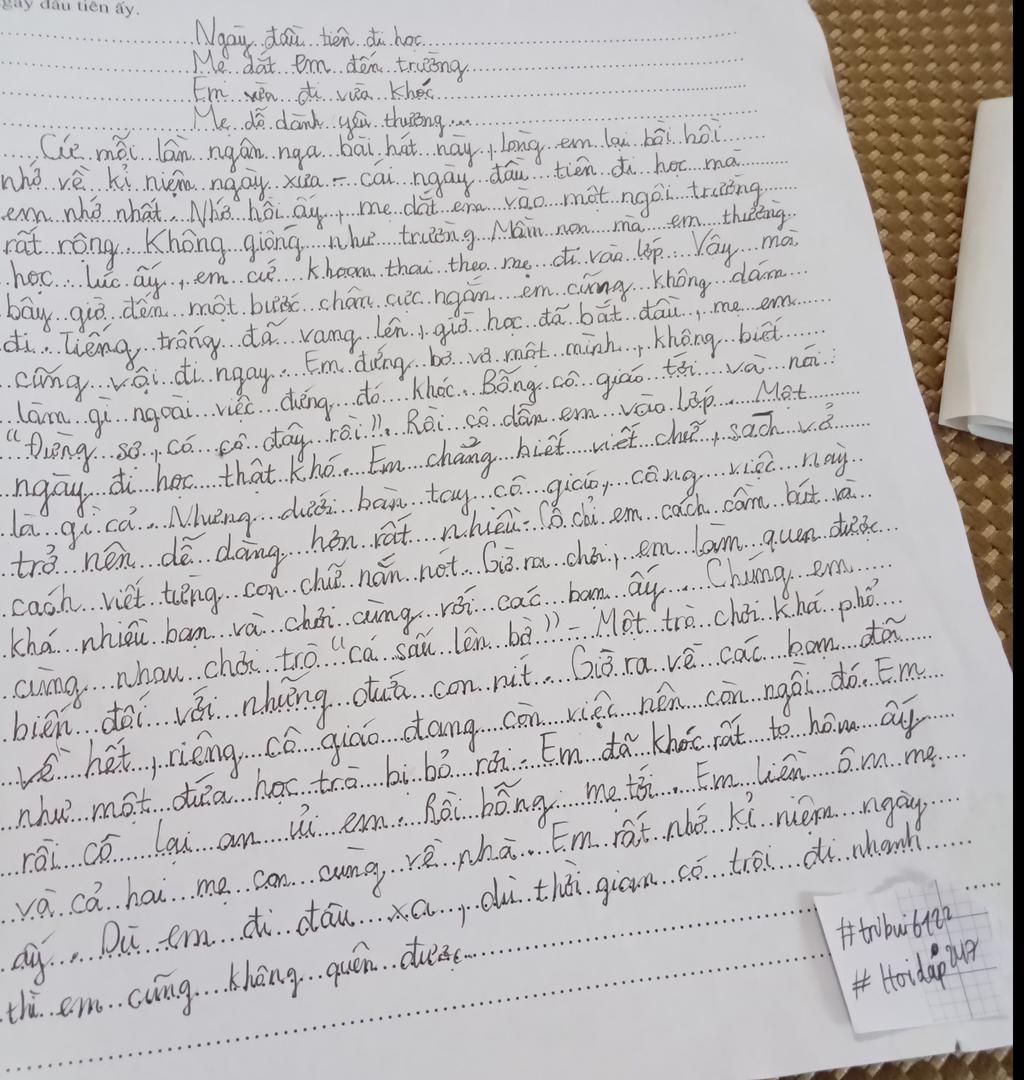 gày đầu tiên ấy.
Ngày đầu tiên đi học
Mẹ dắt em đến trường
Em vừa đi vừa khóc
Mẹ dỗ dành yêu thương...
Cứ mỗi lần ngân nga bài hát này, lòng em lại bồi hồi
nhớ về kỉ niệm ngày xưa - cái ngày đầu tiên đi học mà
em nhớ nhất. Nhớ hồi ấy, mẹ dắt em vào một ngôi trường
rất rộng. Không giống như trường Mầm non mà em thường
học. Lúc ấy, em cứ khoan thai theo mẹ đi vào lớp. Vậy mà
bây giờ đến một bước chân cực ngắn em cũng không dám
đi. Tiếng trống đã vang lên, giờ học đã bắt đầu, mẹ em
cũng vội đi ngay. Em đứng bơ vơ một mình, không biết
làm gì ngoài việc đứng đó khóc. Bỗng cô giáo tới và nói:
"Đừng sợ, có cô đây rồi". Rồi cô dẫn em vào lớp. Một
ngày đi học thật khó. Em chẳng biết viết chữ, sách vở
là gì cả. Nhưng dưới bàn tay cô giáo, công việc này
trở nên dễ dàng hơn rất nhiều. Cô chỉ em cách cầm bút và
cách viết từng con chữ nắn nót. Giờ ra chơi, em làm quen được
khá nhiều bạn và chơi cùng với các bạn ấy. Chúng em
cùng nhau chơi trò "cá sấu lên bờ" - Một trò chơi khá phổ
biến đối với những đứa con nít. Giờ ra về các bạn đã
về hết, riêng cô giáo đang còn việc nên còn ngồi đó. Em
như một đứa học trò bị bỏ rơi. Em đã khóc rất to hôm ấy
rồi cô lại an ủi em. Rồi bỗng mẹ tới. Em liền ôm mẹ
và cả hai mẹ con cùng về nhà. Em rất nhớ kỉ niệm ngày
ấy. Dù em đi đâu xa, dù thời gian có trôi đi nhanh
thì em cũng không quên được.
#trvbui6122
#Hoidap247